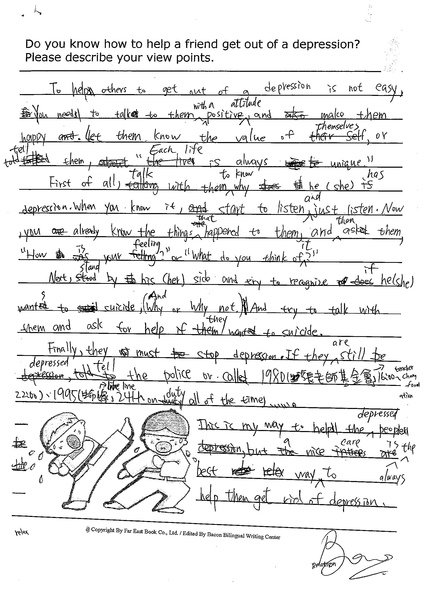 Do you know how to help a friend get out of a depression?
Please describe your view points.
To help others to get out of a depression is not easy,
with a attitude
You need to talk to them positive, and make them
themselves
happy. let them know the value of their self, or
tell Each life
told them, "the lives is always unique"
talk to know has
First of all, talking with them why he (she) is
and
depression. When you know it, start to listen, just listen. Now
that then
you already know the things happened to them, and asked them,
is feeling it
"How your felling?" or "What do you think of?"
stand if
Next, stood by his (her) side and try to recognize does he(she)
And
wanted to suicide (Why or why not.) And try to talk with
they
them and ask for help if them wanted to suicide.
are
Finally, they must stop depression. If they still be
depressed tell teacher
depression, told the police or called 1980(張老師基金會,
life line duty
22470), 1995(24h on all of the time)......
depressed
This is my way to help the people
a care is the
depression, but the nice are
best relax way to always
help them get rid of depression.
be
relax
@ Copyright By Far East Book Co., Ltd. / Edited By Bacon Bilingual Writing Center